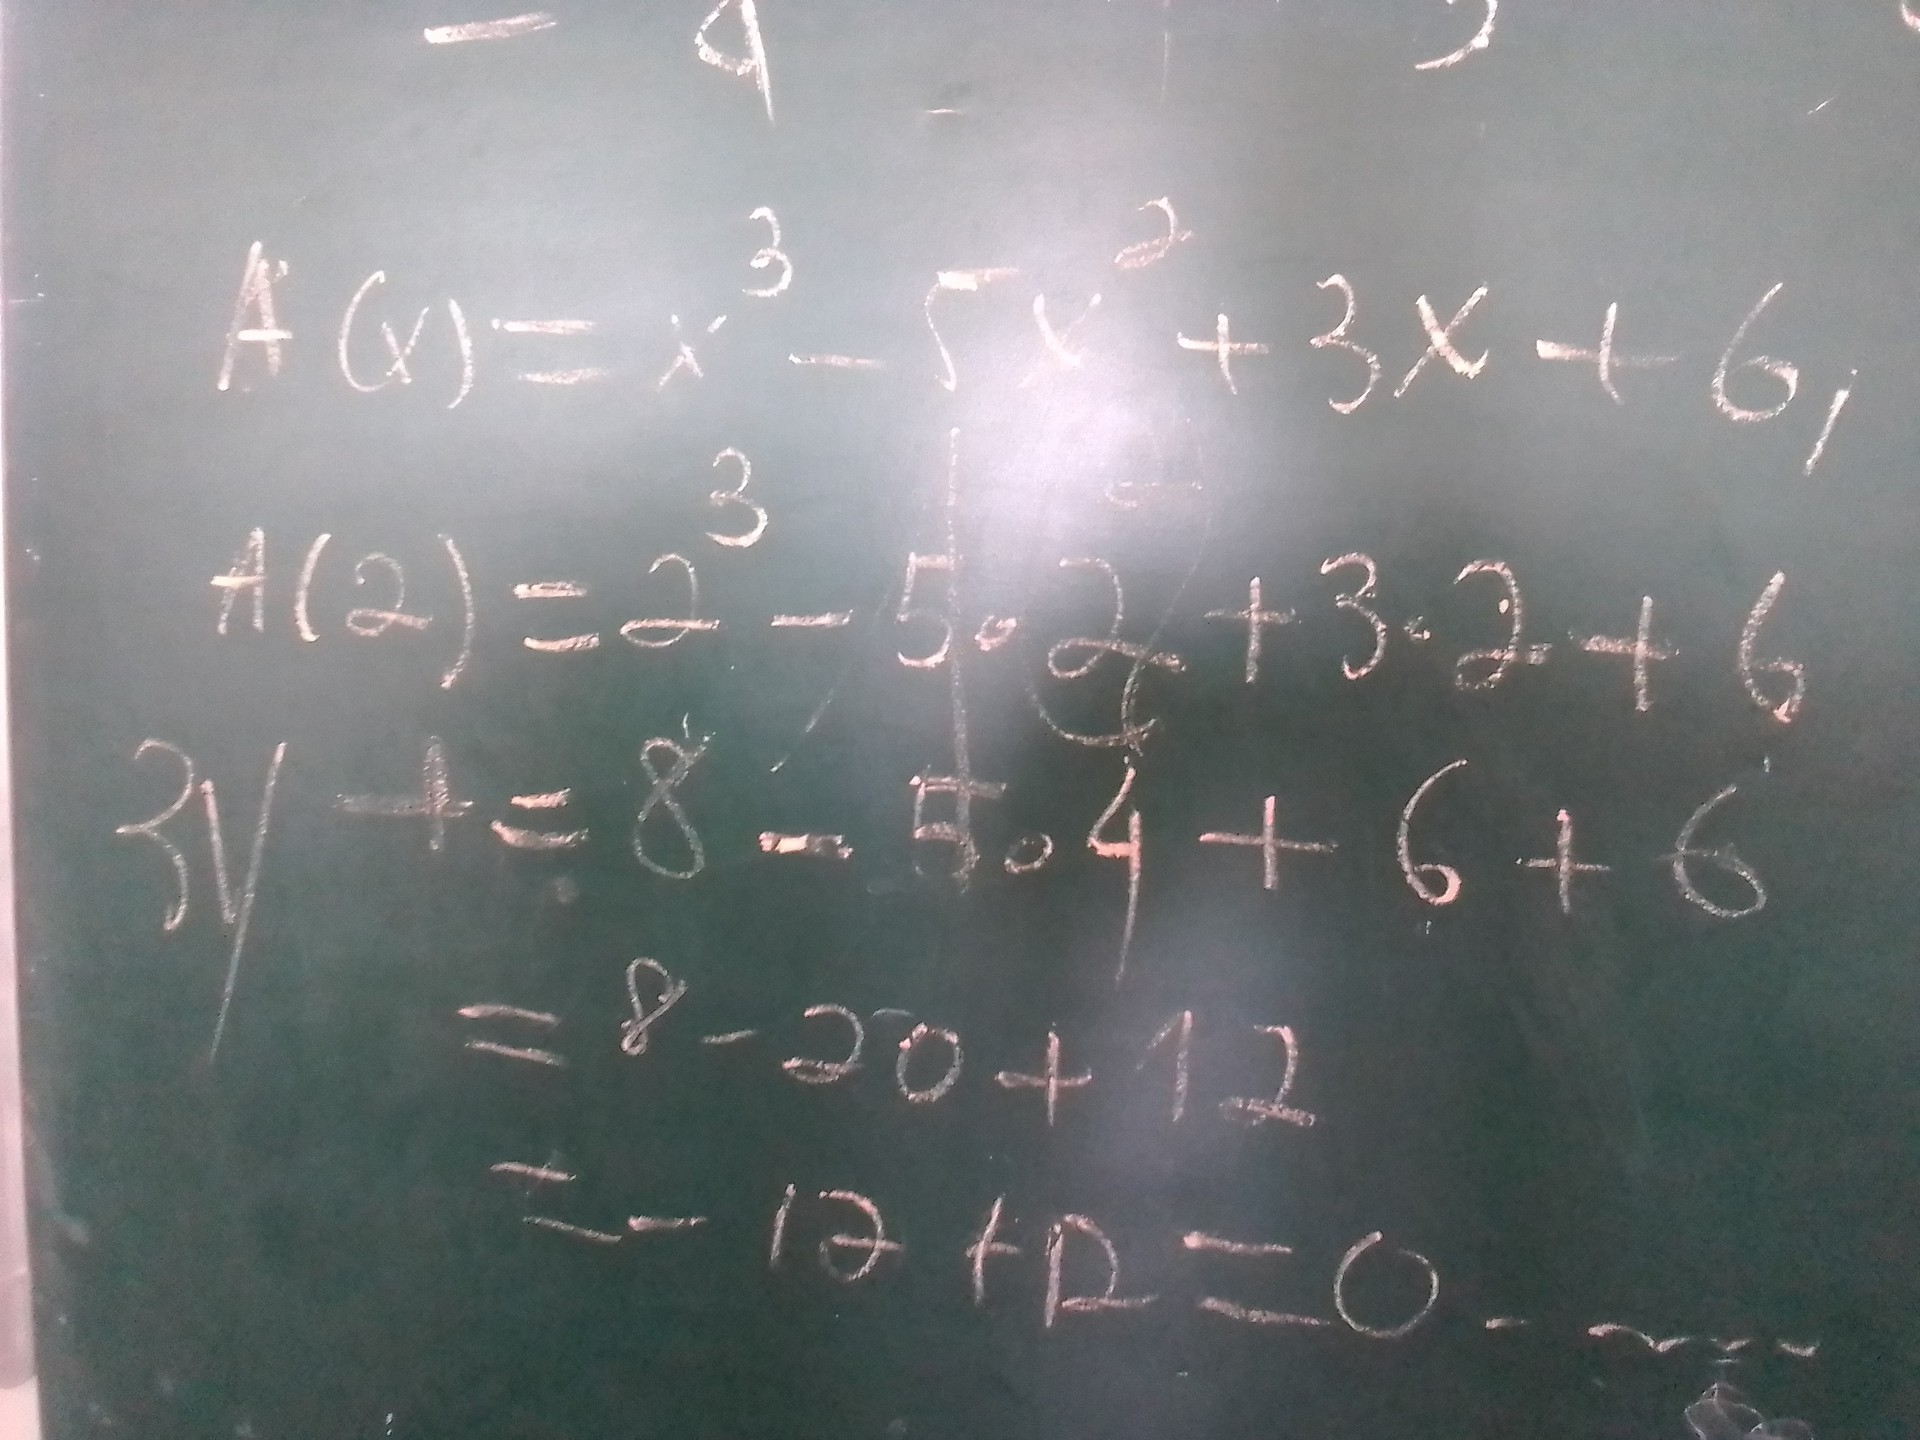 - 4 3
A(x) = x³ - 5x² + 3x + 6,
A(2) = 2³ - 5·2 + 3·2 + 6
3y + = 8 - 5·4 + 6 + 6
= 8 - 20 + 12
= -12 + 12 = 0